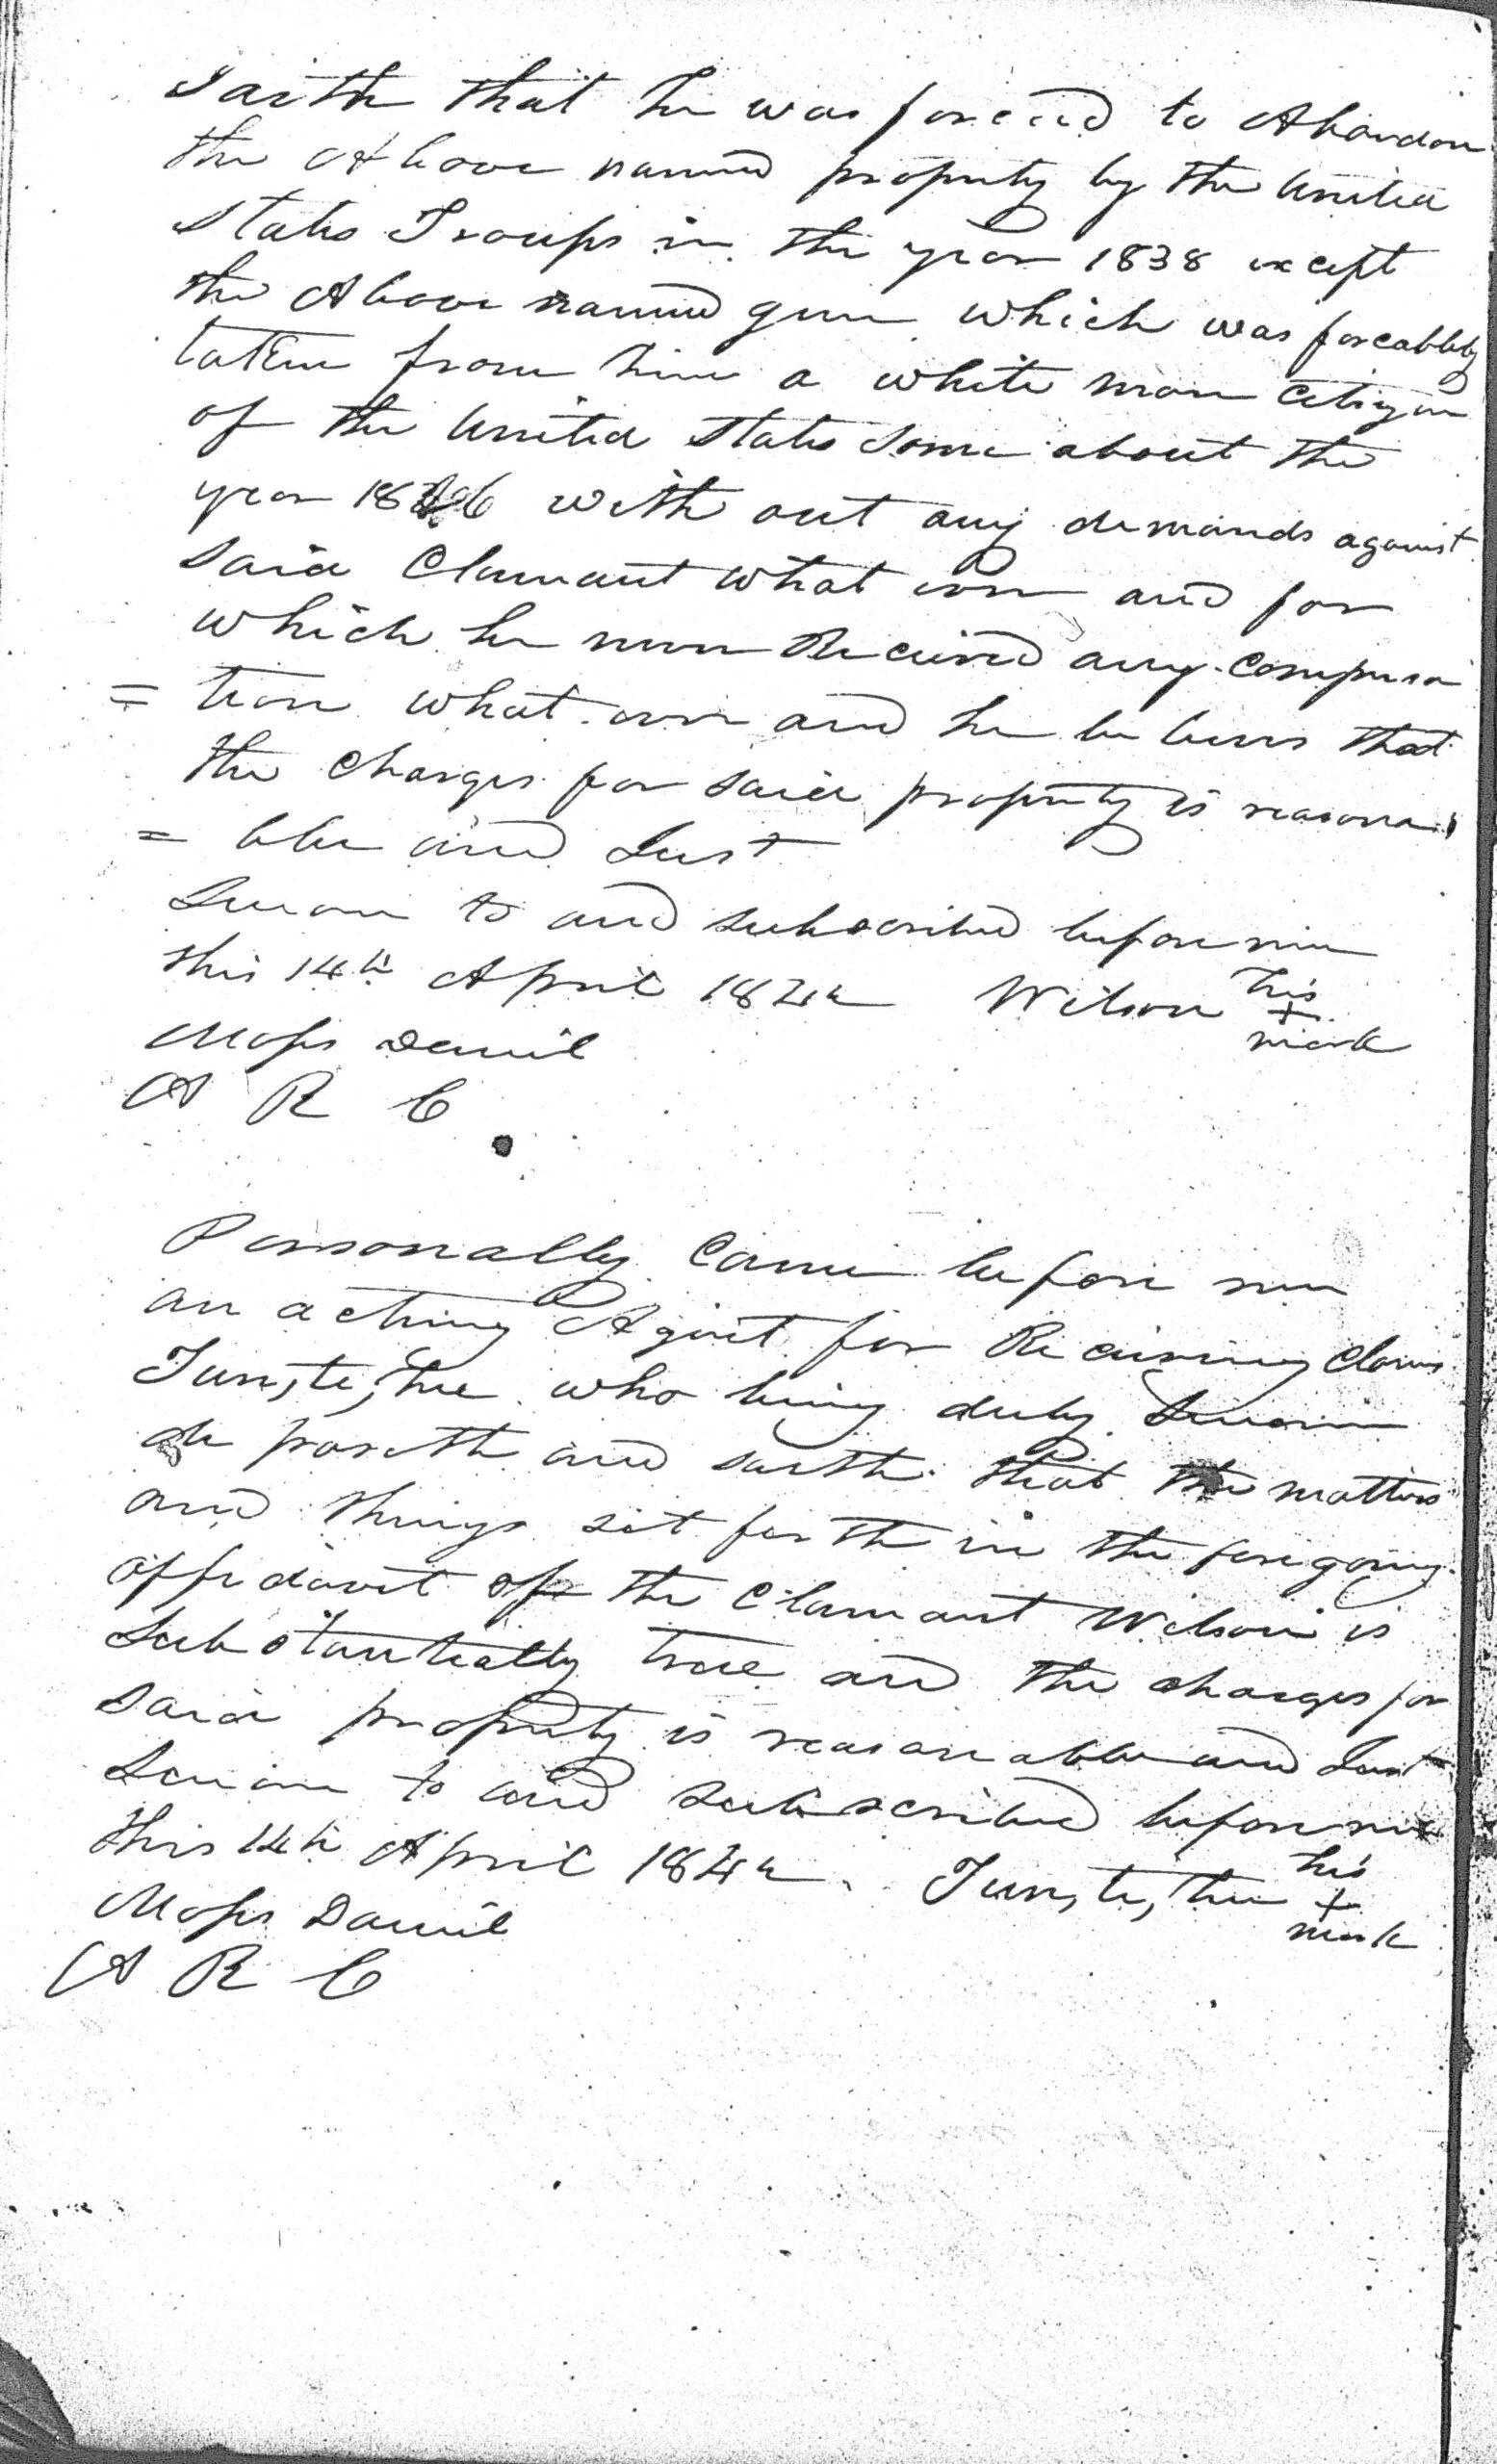 Saith that he was forced to Abandon
the Above named property by the United
States Troops in the year 1838 except
the Above named gun which was forceablly
taken from him a white man Citizen
of the United States some about the
year 1836 with out any demands against
said Clamant what ever and for
which he never Received any compensa
= tion what ever and he believs that
the charges for said property is reasona
= ble and Just
Sworn to and subscribed before me
this 14th April 1842 Wilson his
+
mark
Moses Daniel
A R C
Personally Came before me
an acting Agent for Receiving Claims
Tun,te,hee who being duly Sworn
deposeth and saith that the matters
and things set forth in the foregoing
affidavit of the Clamant Wilson is
Substantially true and the charges for
said property is reasonable and Just
Sworn to and subscribed before me
this 14th April 1842 Tun,te,hee his
+
mark
Moses Daniel
A R C